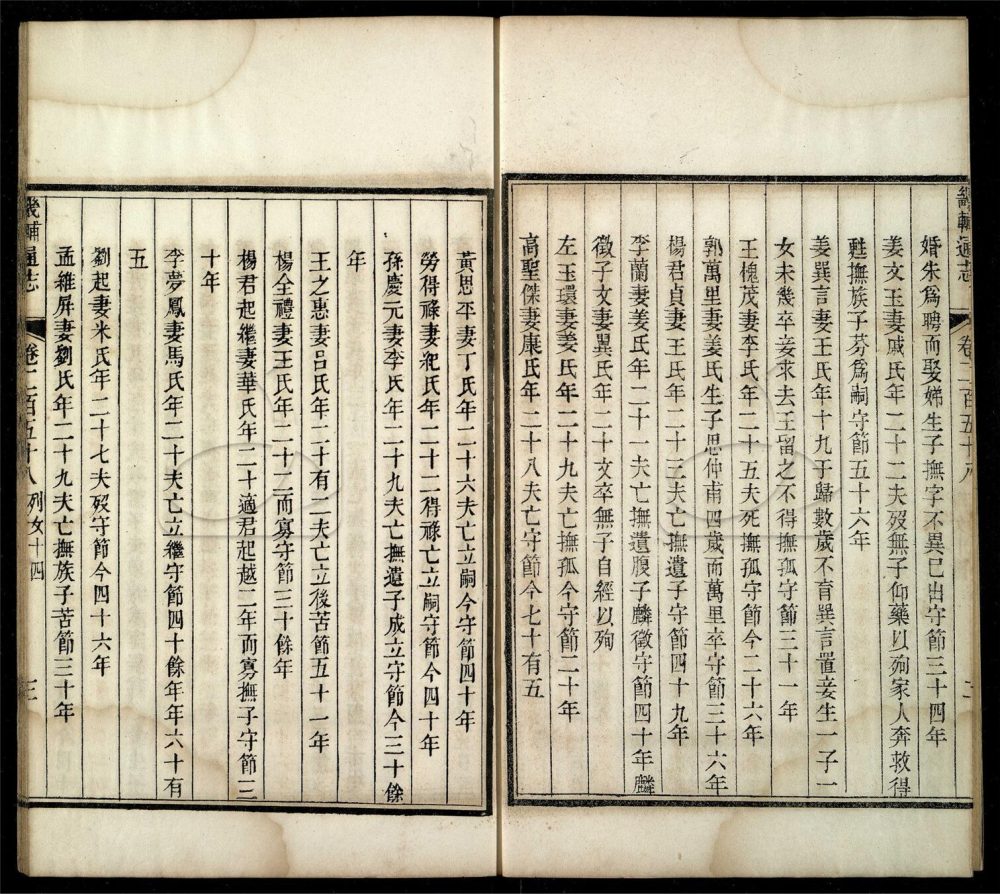 畿輔通志
卷二百五十八
婚朱爲聘而娶娣生子撫字不異已出守節三十四年
姜文玉妻戚氏年二十二夫歿無子仰藥以殉家人奔救得
甦撫族子芬爲嗣守節五十六年
姜巽言妻王氏年十九于歸數歲不育巽言置妾生一子一
女未幾卒妾求去王留之不得撫孤守節三十一年
王槐茂妻李氏年二十五夫死撫孤守節今二十六年
郭萬里妻姜氏生子思仲甫四歲而萬里卒守節三十六年
楊君貞妻王氏年二十三夫亡撫遺子守節四十九年
李蘭妻姜氏年二十一夫亡撫遺腹子麟徵守節四十年麟
徵子文妻異氏年二十文卒無子自經以殉
左玉環妻姜氏年二十九夫亡撫孤今守節二十年
高聖傑妻康氏年二十八夫亡守節今七十有五
黃思平妻丁氏年二十六夫亡立嗣今守節四十年
勞得祿妻紀氏年二十二得祿亡立嗣守節今四十年
孫慶元妻李氏年二十九夫亡撫遺子成立守節今三十餘
年
王之惠妻呂氏年二十有二夫亡立後苦節五十一年
楊全禮妻王氏年二十二而寡守節三十餘年
楊君起繼妻華氏年二十適君起越二年而寡撫子守節三
十年
李夢鳳妻馬氏年二十夫亡立繼守節四十餘年年六十有
五
劉起妻米氏年二十七夫歿守節今四十六年
孟維屏妻劉氏年二十九夫亡撫族子苦節三十年
畿輔通志
卷二百五十八 列女十四
三